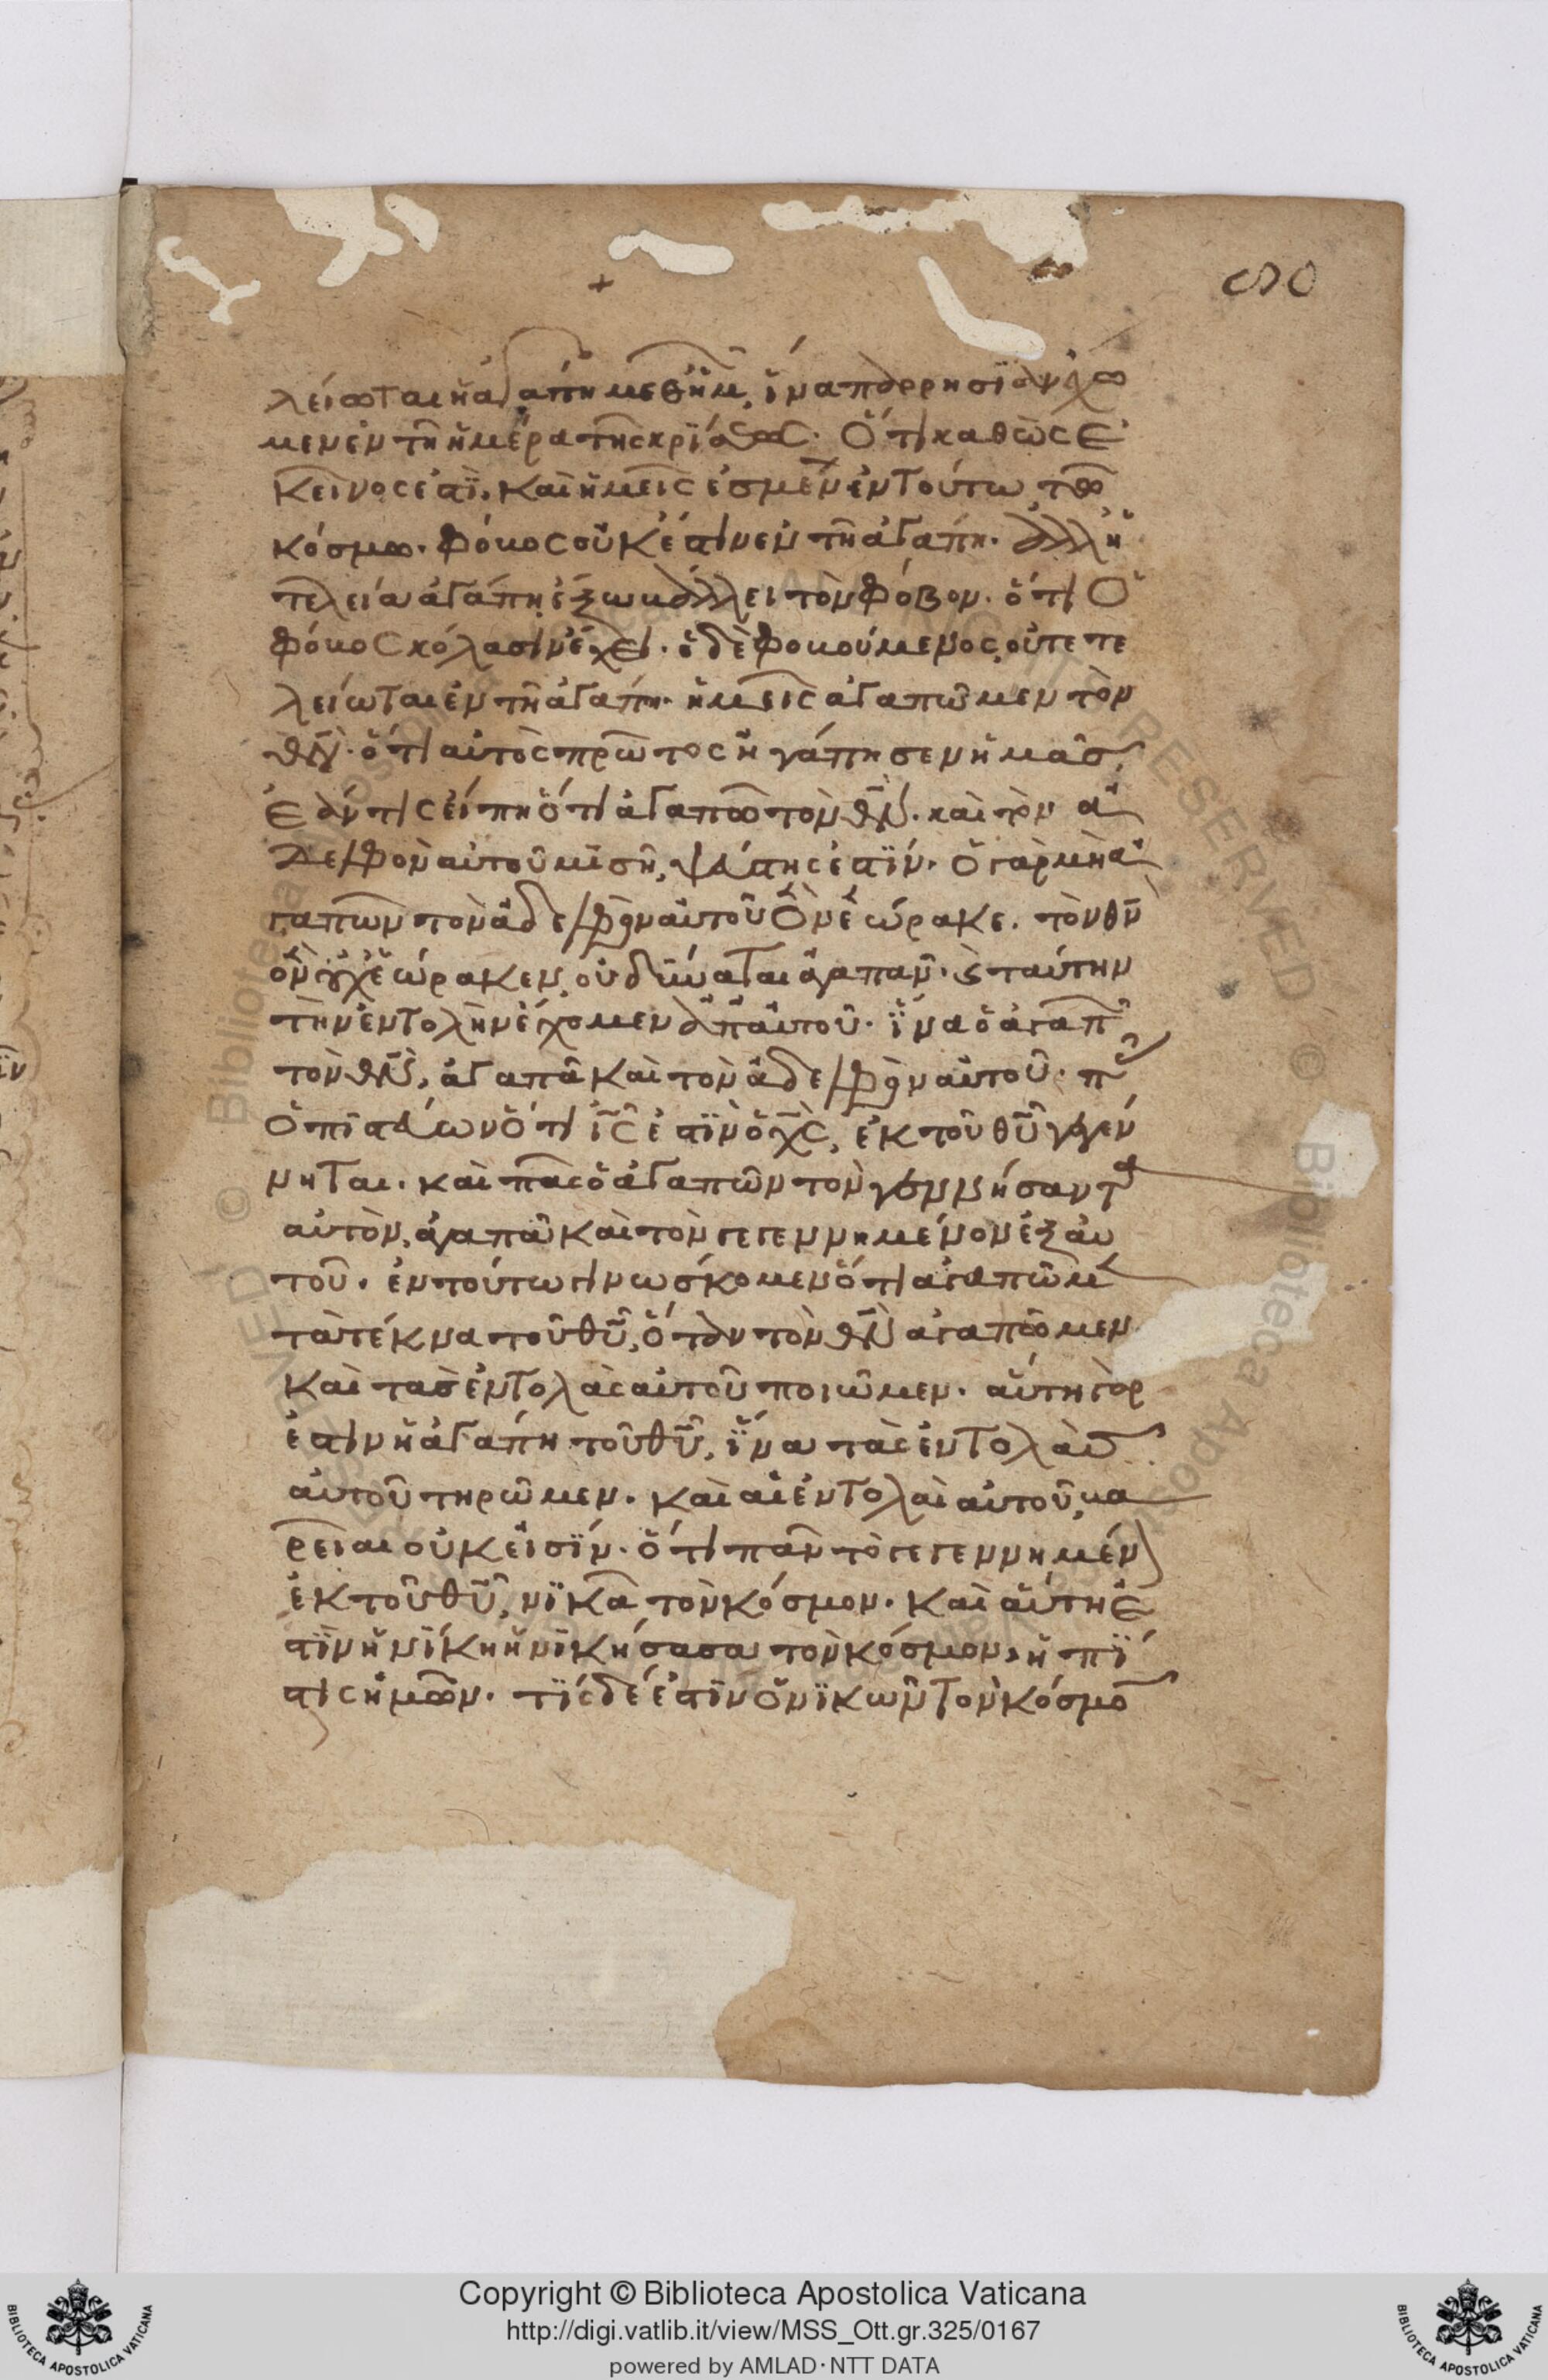 +
λείωται ἡ ἀγάπη μεθ' ἡμ, ἵνα παρρησΐαν ἔχω
μεν ἐν τῆ ἡμέρα τῆς κρΐσεως· Ὅτι καθὼς ἐ
κεῖνος ἐστϊ, καὶ ἡμεῖς ἐσμὲν ἐν τούτω τῶ
κόσμω· φόβος οὐκ ἔστιν ἐν τῆ ἀγάπη· ἀλλ' ἡ
τελεία ἀγάπη ἔξω βάλλει τὸν φόβον· ὅτι ὁ
φόβος κόλασιν ἔχει· ὁ δὲ φοβούμενος, οὔτε τε
λείωται ἐν τῆ ἀγάπη· ἡμεῖς ἀγαπῶμεν τὸν
θν· ὅτι αὐτὸς πρῶτος ἠγάπησεν ἡμᾶς,
Ἐάν τις εἴπη ὅτι ἀγαπῶ τὸν θν· καὶ τὸν ἀ
δελφὸν αὐτοῦ μισῆ, ψεύστης ἐστΐν· ὁ γὰρ μὴ ἀ
γαπῶν τὸν ἀδελφὸν αὐτοῦ ὃν ἑώρακε· τὸν θν
ὃν οὐχ ἑώρακεν, οὐ δύναται ἀγαπᾶν· κ ταύτην
τὴν ἐντολὴν ἔχομεν ἀπ' αὐτοῦ· ἵνα ὁ ἀγαπ
τὸν θν, ἀγαπᾶ καὶ τὸν ἀδελφὸν αὐτοῦ· π
ὁ πιστεύων ὅτι ις ἐστϊν ὁ χς, ἐκ τοῦ θυ γεγέν
νηται· καὶ πᾶς ὁ ἀγαπῶν τὸν γεννήσαντα
αὐτὸν, ἀγαπᾶ καὶ τὸν γεγεννημένον ἐξ αὐ
τοῦ· ἐν τούτω γινωσκομεν ὅτι ἀγαπῶμ
τὰ τέκνα τοῦ θυ, ὅταν τὸν θν ἀγαπῶμεν
καὶ τὰς ἐντολὰς αὐτοῦ ποιῶμεν· αὕτη γάρ
ἐστιν ἡ ἀγάπη τοῦ θυ, ἵνα τὰς ἐντολὰς
αὐτοῦ τηρῶμεν· καὶ αἱ ἐντολαὶ αὐτοῦ, βα
ρεῖαι οὐκ εἰσΐν· ὅτι πᾶν τὸ γεγεννημέν
ἐκ τοῦ θυ, νϊκᾶ τὸν κόσμον· καὶ αὕτη ἐ
στϊν ἡ νΐκη ἡ νικήσασα τὸν κόσμον, ἡ πΐ
στις ἡμῶν· τΐς δέ ἐστϊν ὁ νϊκῶν τὸν κόσμο
Copyright © Biblioteca Apostolica Vaticana
http://digi.vatlib.it/view/MSS_Ott.gr.325/0167
powered by AMLAD·NTT DATA